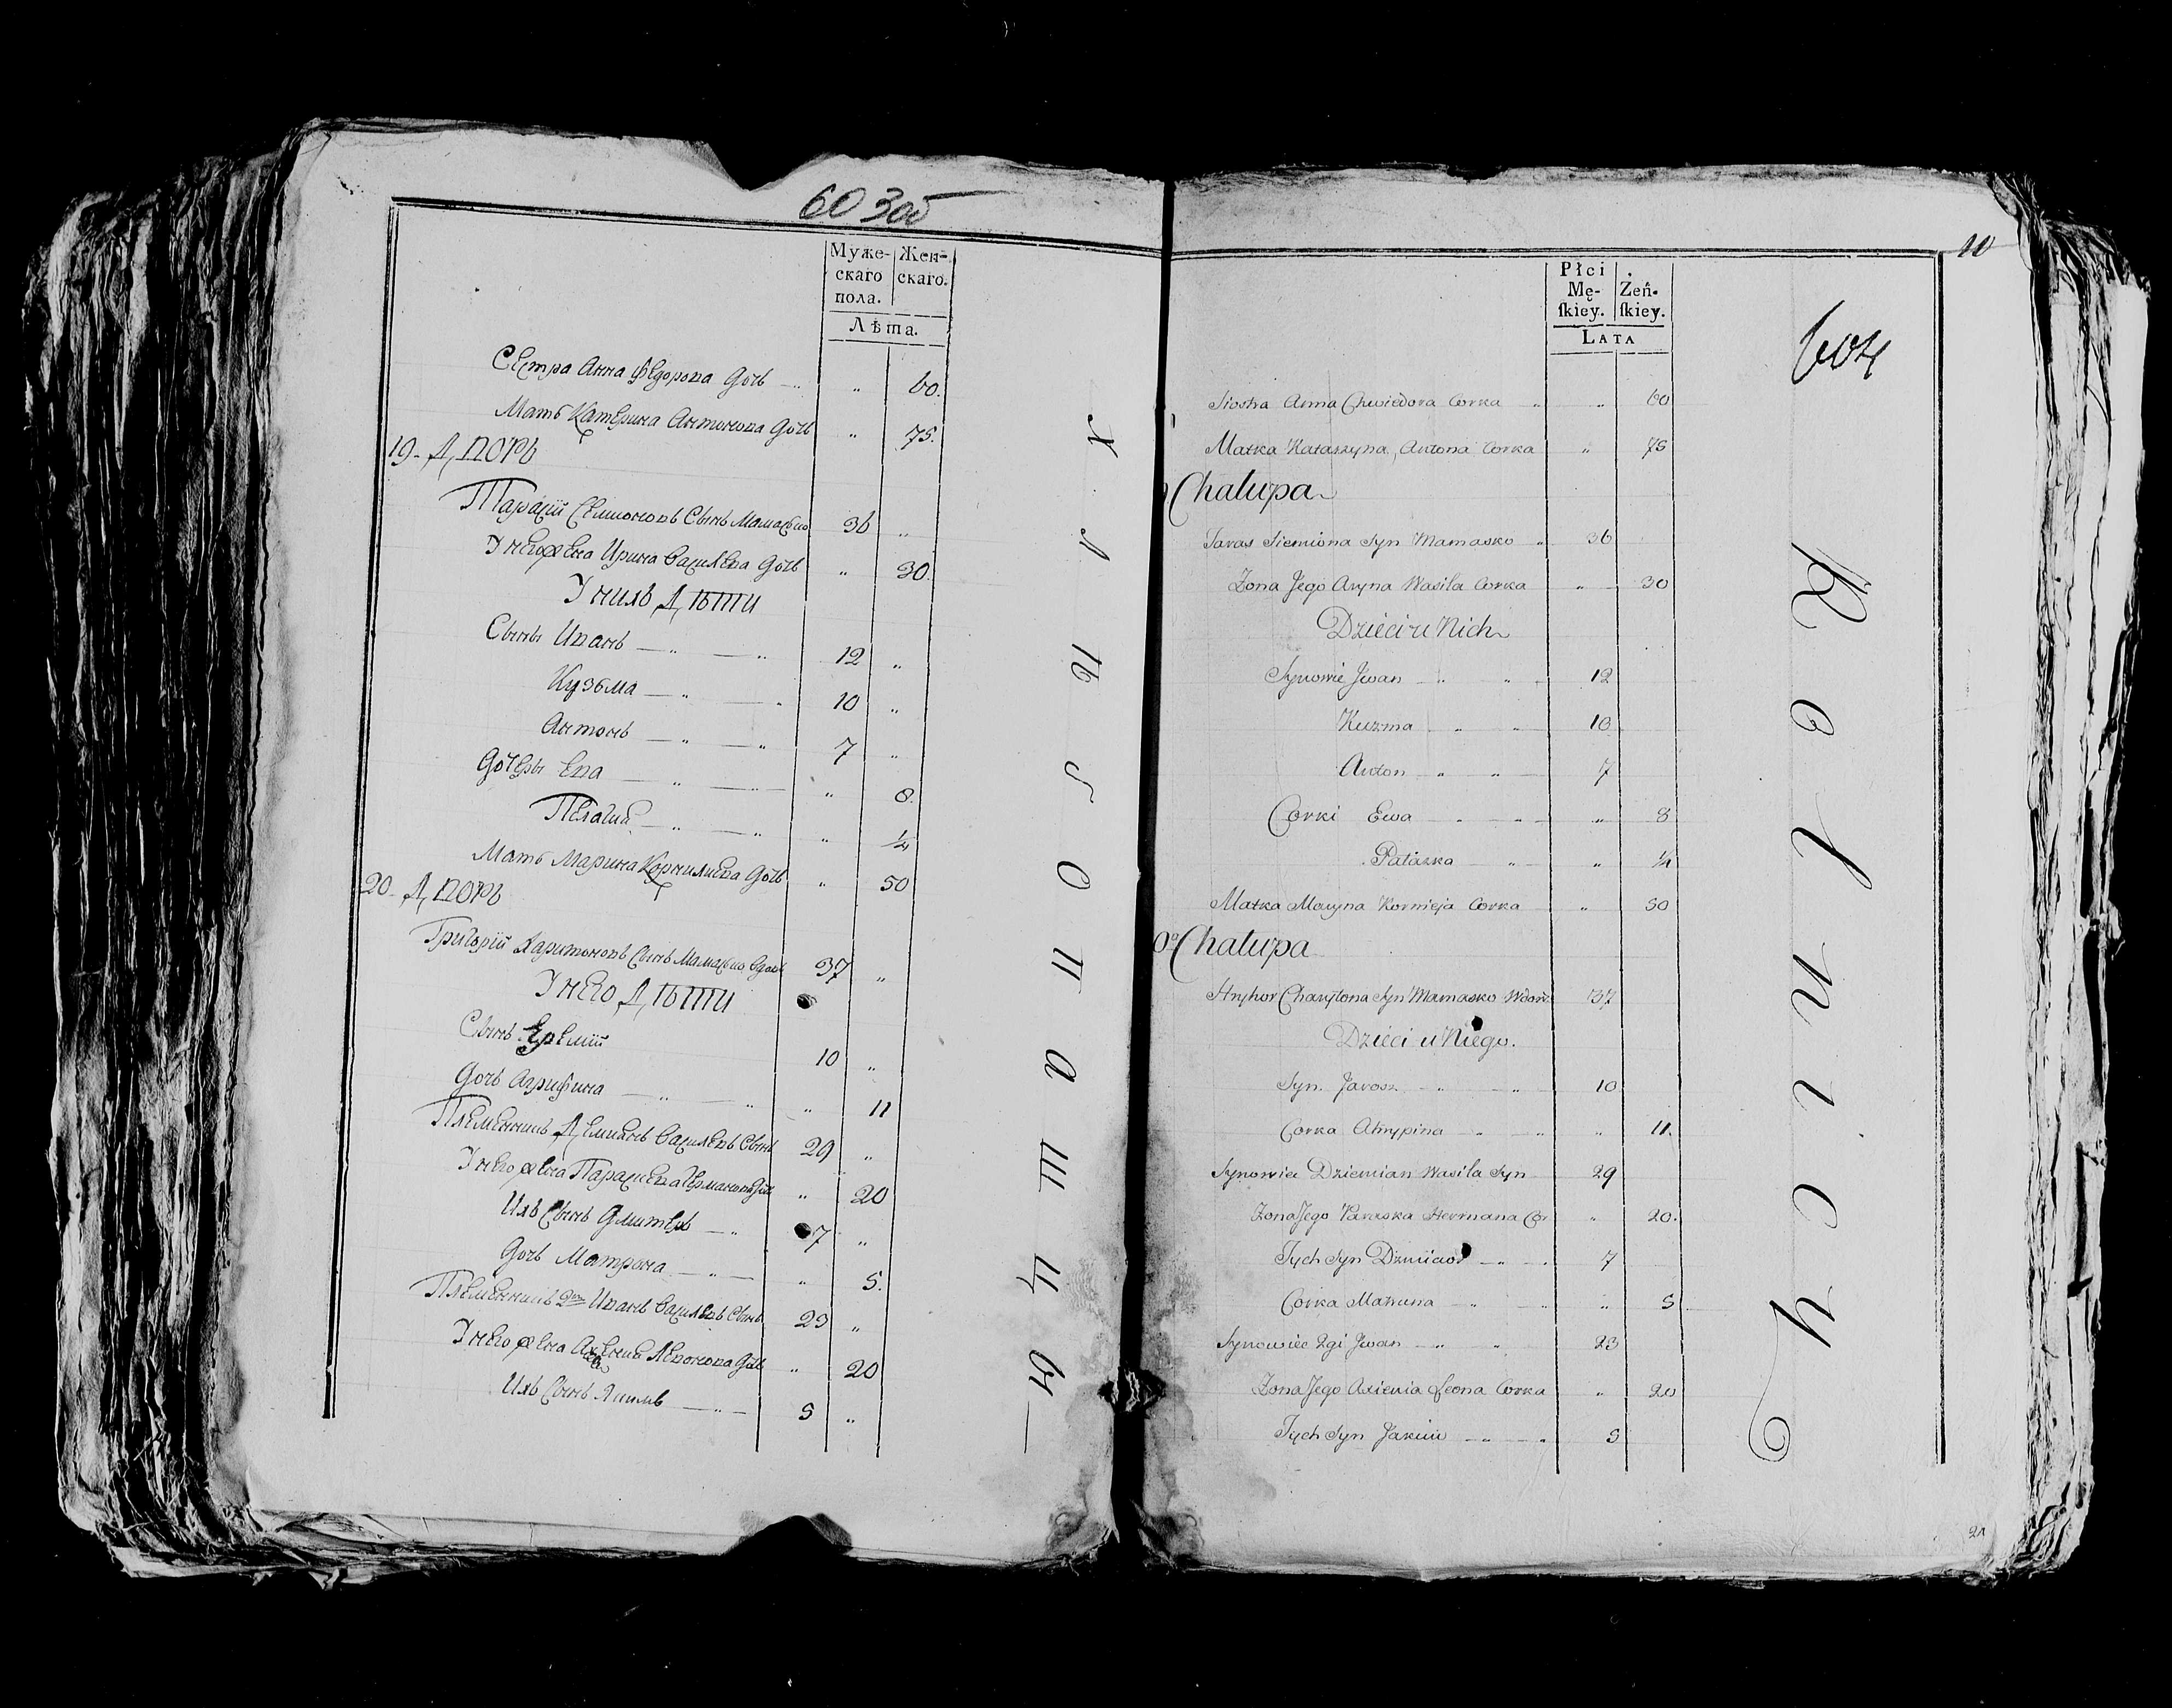 603об
Муже-
скаго
пола.
Жен-
скаго.
Лѣта.
Сестра Анна Федорова дочь „ 60.
Мать Катерина Антонова дочь „ 75.
19. Дворъ
Тарасій Семионовъ Сынъ Мамасько 36 „
У него жена Ирина Василева дочь „ 30.
У нихъ Дѣти
Сыны Иванъ 12 „
Кузьма 10 „
Антонъ 7 „
Дочеры Ева „ 8.
Пелагия „ 1/4
Мать Марина Корнилиева дочь „ 50
20. Дворъ
Григорій Харитоновъ Сынъ Мамасько вдовъ 37 „
У него Дѣти
Сынъ Еремій 10 „
Дочь Агрифина „ 11
Племенникъ Демианъ Василевъ Сынъ 29 „
У него жена Параскева Германова дочь „ 20
Ихъ Сынъ Дмитеръ 7 „
Дочь Матрона „ 5.
Племенникъ 2й Иванъ Василевъ Сынъ 23 „
У него жена Авсения Левонова дочь „ 20
Ихъ Сынъ Якимъ 5 „
Хлѣбопашцы
10
604
Płci
Mę-
ſkiey.
Żeń-
ſkiey.
LATA
Siostra Anna Chwiedora Corka „ 60
Matka Kataszyna, Antona Corka „ 75
Chałupa
Taras Siemiona Syn Mamasko 36
Zona Jego Aryna Wasila Corka „ 30
Dzieci u Nich
Synowie Jwan 12
Kuzma 10
Anton 7
Corki Ewa „ 8
Pałaszka „ 1/4
Matka Maryna Kornieja Corka „ 50
0º Chałupa
Hryhor Charytona Syn Mamasko Wdow. 37
Dzieci u Niego.
Syn. Jarosz 10
Corka Ahrypina „ 11.
Synowiec Dziemian Wasila Syn 29
Zona Jego Paraska Hermana Cor „ 20.
Tych Syn Dzmicier 7
Corka Matruna „ 5
Synowiec 2gi Jwan 23
Zona Jego Axienia Leona Corka „ 20
Tych Syn Jakim 5
Rolnicy
21